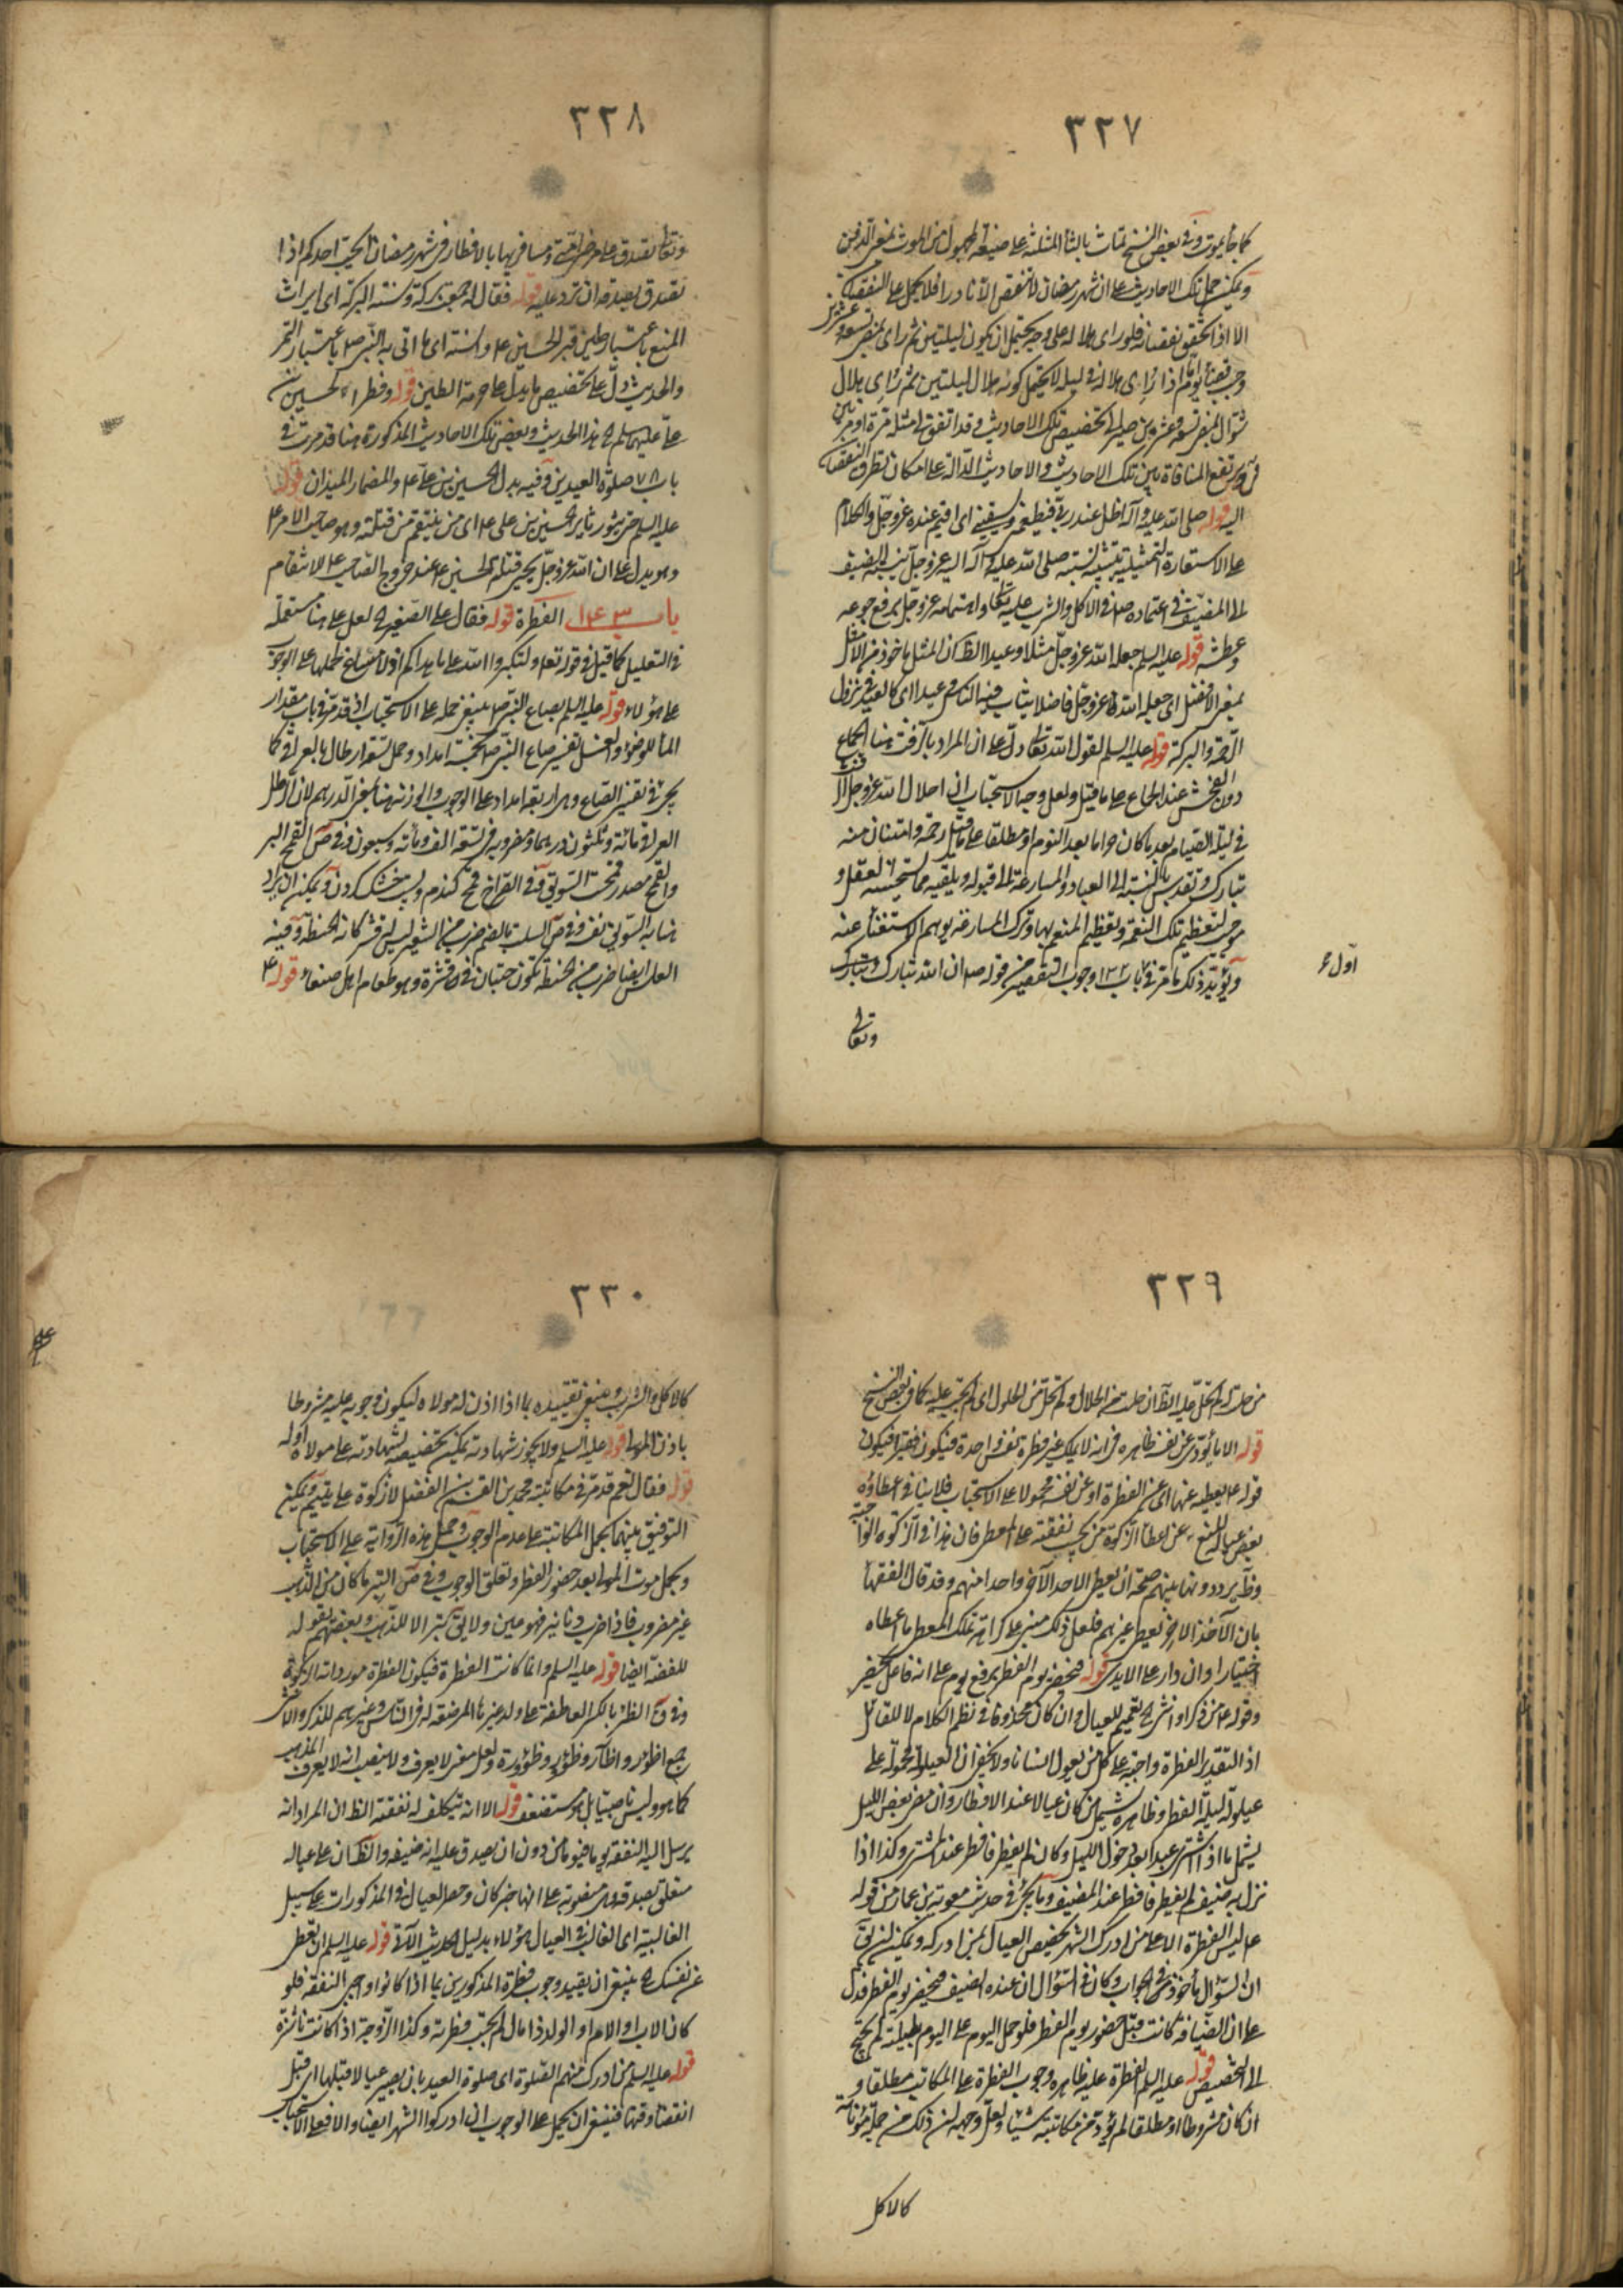 ٣٢٧
كما جاء يموت وفي بعض النسخ تماث بالثاء المثلثة على صيغة المجهول من الموث بمعنى الدفن
ويمكن حمل تلك الاحاديث على ان شهر رمضان لا ينقص الا نادرا فلا يحمل على النقصان
الا اذا تحقق نقصانه فلو راى هلاله على وجه يحتمل ان يكون لليلتين ثم راى بمضى تسعة وعشرين
وجب قضاء يوم اما اذا رأى هلاله في ليلة لا يحتمل كونه هلال ليلتين ثم رأى هلال
شوال لمضى تسعة وعشرين صير الى تخصيص تلك الاحاديث وقد اتفق مثله مرة او مرتين
ويرتفع المنافاة بين تلك الاحاديث والاحاديث الدالة على امكان تطرق النقصان
اليه قوله صلى الله عليه وآله اظل عند ربي فيطعمني ويسقيني اى اقيم عنده عز وجل والكلام
على الاستعارة التمثيلية بتشبيه نسبته صلى الله عليه وآله اليه عز وجل بنسبة الضيف
الى المضيف في اعتماده في الاكل والشرب عليه تعالى واهتمامه عز وجل برفع جوعه
وعطشه قوله عليه السلم جعله الله عز وجل مثلا وعيدا الظ ان المثل ماخوذ من الامثل
بمعنى الافضل اى جعله الله عز وجل فاضلا يثاب فيه الناس وعيدا اى كالعيد في نزول
الرحمة والبركة قوله عليه السلم لقول الله تعالى دل على ان المراد بالرفث هنا الجماع
دون الفحش عند الجماع على ما قيل ولعل وجه الاستحباب ان احلال الله عز وجل الرفث
في ليلة الصيام بعد ما كان حراما بعد النوم او مطلقا على ما قيل رحمة وامتنان منه
تبارك وتقدس بالنسبة الى العباد والمسارعة الى قبوله وتلقيه مما يستحسنه العقل و
موجب لتعظيم تلك النعمة وتعظيم المنعم بها وترك المسارعة يوهم الاستغناء عنه
ويؤيد ذلك ما مر في باب ١٣٢ وجوب التقصير من قوله ص ان الله تبارك وتبارك
اول ع
وتعالى
٣٢٨
وتعالى تصدق على مرضى امتى ومسافريها بالافطار في شهر رمضان أيحب احدكم اذا
تصدق بصدقة ان ترد عليه قوله فقال له جمعت بركة وسنة البركة اى ايراث
المنع باعتبار طين قبر الحسين ع والسنة اى ما اتى به النبي ص باعتبار التمر
والحديث دل على تخصيص ما يدل على حرمة الطين قوله وفطرا، لحسين بن
على عليهم السلم هذا الحديث وبعض تلك الاحاديث المذكورة هنا قد مرت في
باب ٧٨ صلوة العيدين وفيه بدل الحسين بن على ع والمضمار الميدان قوله
عليه السلم حتى يثور ثاير الحسين بن على ع اى من ينتقم من قتلته وهو صاحب الامر ع
وهو يدل على ان الله عز وجل يحيى قتلة الحسين ع عند خروج الصاحب ع للانتقام
باب ١٤٣ الفطرة قوله فقال على الصغير الخ لعل على هنا مستعملة
في التعليل كما قيل في قوله تعالى ولتكبروا الله على ما هداكم اذ لا مساغ لحملها على الوجوب
على هؤلاء قوله عليه السلم بصاع النبي ص ينبغي حمله على الاستحباب اذ قد مر في باب مقدار
الماء للوضوء والغسل تفسير صاع النبي ص بخمسة امداد وحمل ستة ارطال بالعراقي كما
يجئ في تفسير الصاع وهو اربعة امداد على الوجوب والوزنة هنا بمعنى الدرهم لان الرطل
العراقي مائة وثلثون درهما ومضروبه في تسعة الف ومائة وسبعون وفي ص القمح البر
والقمح مصدر قمحت السويق وفي الصراح قمح گندم وپست خشک کردن ويمكن ان يراد
هنا به السويق نفسه وفي ص السلت بالضم ضرب من الشعير ليس له قشر كانه الحنطة وفيه
العلس ايضا ضرب من الحنطة تكون حبتان في قشرة وهو طعام اهل صنعاء قوله ع
٣٢٩
من حلت له لم تحل عليه الظ ان حلت من الحلال ولم تحل من الحلول اى لم تجب عليه كما في بعض النسخ
قوله الا ما يؤدى عن نفسه ظاهره في انه لا يملك غير فطرة نفس واحدة فيكون فقيرا فيكون
قوله ع يعطيه عنها اى عن الفطرة او عن نفسه محمولا على الاستحباب فلا ينافي اعطاؤه
بعض عياله المنع عن اعطاء الزكوة من تجب نفقته على المعطى فان هذا في الزكوة الواجبة
وظ يرددونها بينهم صحة ان يعطى الاحد الآخر واحدا منهم وقد قال الفقهاء
بان الآخذ الاخير يعطى غيرهم فلعل ذلك مبنى على كراهة تملك المعطى ما اعطاه
اختيارا وان دار على الايدى قوله فيحضر يوم الفطر برفع يوم على انه فاعل يحضر
وقوله ع من ذكر او انثى الخ تعميم للعيال وان كان محذوفا في نظم الكلام لا للقائل
اذ التقدير الفطرة واجبة على كل من يعول انسانا ولا يخفى ان العيلولة محمولة على
عيلولة ليلة الفطر وظاهره يشمل من كان عيالا عند الافطار وان مضى بعض الليل
يشمل ما اذا اشترى عبدا بعد دخول الليل وكان لم يفطر فافطر عند المشترى وكذا اذا
نزل به ضيف لم يفطر فافطر عند المضيف وما يجئ في حديث معوية بن عمار من قوله
ع ليس الفطرة الا على من ادرك الشهر تخصيص العيال بمن ادركه ويمكن ان يق
ان السؤال مأخوذ في الجواب وكان في السؤال ان عنده الضيف فيحضر يوم الفطر فدل
على ان الضيافة كانت قبل حضور يوم الفطر فلو حمل اليوم على اليوم بليلته لم يحتج
الى التخصيص قوله عليه السلم الفطرة عليه ظاهره وجوب الفطرة على المكاتب مطلقا و
ان كان مشروطا او مطلقا لم يؤد من مكاتبته شيئا ولعل وجهه ان ذلك من جملة مؤناته
كالاكل
٣٣٠
كالاكل والشرب وينبغي تقييده بما اذا اذن له مولاه ليكون وجوبه عليه مشروطا
باذن المولى قوله عليه السلم ولا يجوز شهادته يمكن تخصيصه بشهادته على مولاه او له
قوله فقال نعم قد مر في مكاتبة محمد بن القسم بن الفضيل لا زكوة على يتيم ويمكن
التوفيق بينهما بحمل المكاتبة على عدم الوجوب وحمل هذه الرواية على الاستحباب
ويحمل موت المولى بعد حضور الفطر وتعلق الوجوب وفي ص التبر ما كان من الذهب
غير مضروب فاذا ضرب دنانير فهو عين ولا يق تبر الا للذهب وبعضهم يقوله
للفضة ايضا قوله عليه السلم وانما كانت الفطرة فيكون الفطرة موردا الزكوة
وفي ق الظئر بالكسر العاطفة على ولد غيرها المرضعة له في الناس وغيرهم للذكر والانثى
جمع اظؤر واظآر وظؤر وظؤورة ولعل معنى لا يعرف ولا ينصب انه لا يعرف المذهب
كما هو وليس ناصبيا بل هو مستضعف قوله الا انه يتكلف له نفقته الظ ان المراد انه
يرسل اليه النفقة يوما فيوما من دون ان يصدق عليه انه ضيفه والظ ان على عياله
متعلق بصدقة وهى منصوبة على انها خبر كان وحصر العيال في المذكورات على سبيل
الغالبية اى الغالب في العيال هؤلاء بدليل الحديث الآتي قوله عليه السلم ان تعطى
عن نفسك الخ ينبغي ان يقيد وجوب فطرة المذكورين بما اذا كانوا واجبى النفقة فلو
كان الاب او الام او الولد ذا مال لم تجب فطرته وكذا الزوجة اذا كانت ناشزة
قوله عليه السلم من ادرك منهم الصلوة اى صلوة العيد بان يصير عيالا قبلها اى قبل
انقضاء وقتها فينبغي ان يحمل على الوجوب ان ادركوا الشهر ايضا والا فعلى الاستحباب